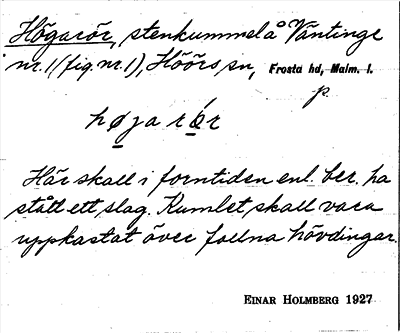 Högarör, stenkummel å Väntinge
nr. 1 (fig. nr. 1), Höörs sn, Frosta hd, Malm. l.
p.
højarör
Här skall i forntiden enl. ber. ha
stått ett slag. Kumlet skall vara
uppkastat över fallna hövdingar.
EINAR HOLMBERG 1927